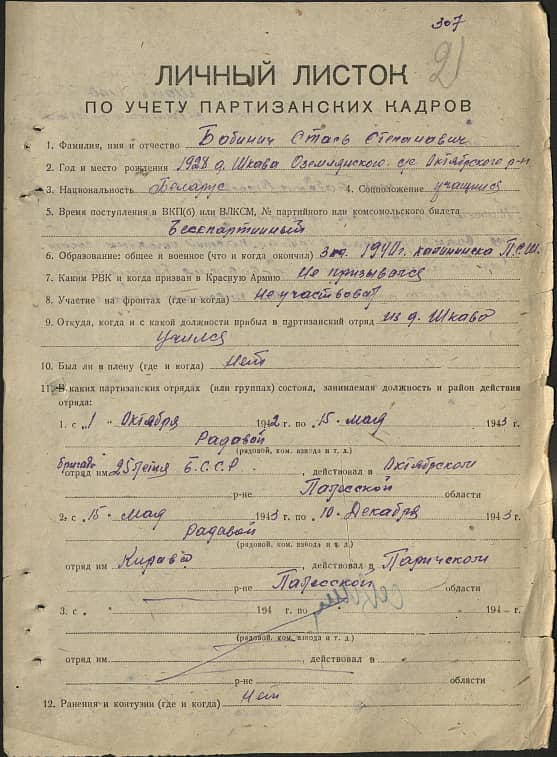 307
21
ЛИЧНЫЙ ЛИСТОК
ПО УЧЕТУ ПАРТИЗАНСКИХ КАДРОВ
1. Фамилия, имя и отчество Бабинич Стась Степанавич
2. Год и место рождения 1928 д. Шкава Оземлянского с/с Октябрского р-н
3. Национальность Беларус 4. Соцположение учащийся
5. Время поступления в ВКП(б) или ВЛКСМ, № партийного или комсомольского билета
Беспартийный
6. Образование: общее и военное (что и когда окончил) 3 кл. 1940 г. П.С.Ш.
7. Каким РВК и когда призван в Красную Армию Не призывался
8. Участие на фронтах (где и когда) Не участвовал
9. Откуда, когда и с какой должности прибыл в партизанский отряд из д. Шкаво
Учился
10. Был ли в плену (где и когда) Нет
11. В каких партизанских отрядах (или группах) состоял, занимаемая должность и район действия
отряда:
1. с „1 Октября 1942 г. по 15. мая 1943 г.
Радавой
(рядовой, ком. взвода и т. д.)
бригада
отряд им 25 летия Б.С.С.Р., действовал в Октябрском
р-не Палесской области
2. с „15. мая 1943 г. по 10. Декабря 1943 г.
Радавой
(рядовой, ком. взвода и т. д.)
отряд им Кирава, действовал в Паричском
р-не Палесской области
3. с „ 194 г. по 194 г.
(рядовой, ком. взвода и т. д.)
отряд им , действовал в
р-не области
12. Ранения и контузии (где и когда) Нет